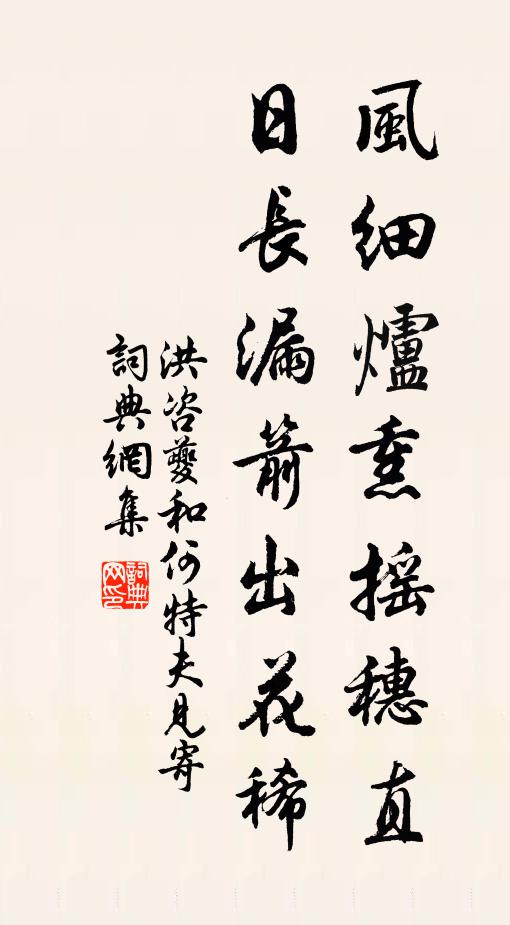 風細爐熏搖穗直
日長漏箭出花稀
洪咨夔和何特夫見寄
詞典網集
詞典网印